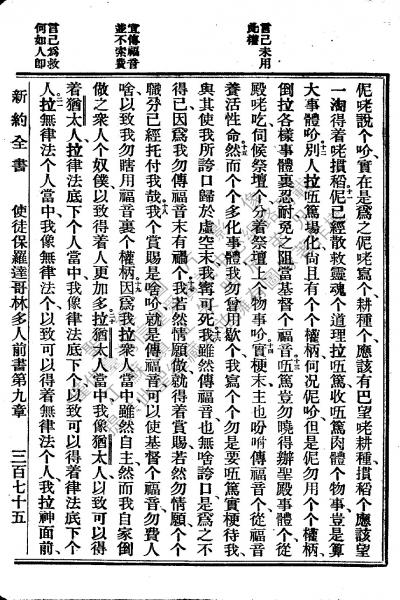 言己未用
此權
宣傳福音
並不索費
言己為救
何如人卽
伲咾說个吟實在是為之伲咾寫个耕種个應該有巴望咾耕種摜稻个應該望
一淘得着咾摜稻伲已經散救靈魂个道理拉㑚篤收㑚篤肉體个物事豈是算
大事體吟別人拉㑚篤場化尙且有个个權柄何况伲吟但是伲勿用个个權柄
倒拉各樣事體裏忍耐免之阻當基督个福音㑚篤豈勿曉得辦聖殿事體个從
殿咾吃伺候祭壇个分着祭壇上个物事吟實梗末主也吩咐傳福音个從福音
養活性命然而个个多化事體我勿曾用歇个我寫个个勿是要㑚篤實梗待我
與其使我所誇口歸於虛空末我寧可死我雖然傳福音也無啥誇口是為之不
得已因為我勿傳福音末有禍个我若然情願做就得着賞賜若然勿情願个个
職分已經托付我哉我个賞賜是啥吟就是傳福音可以使基督个福音勿費人
啥以致我勿瞎用福音裏个權柄因為我拉衆人當中雖然自主然而我自家倒
做之衆人个奴僕以致得着人更加多拉猶太人當中我像猶太人以致可以得
着猶太人拉律法底下个人當中我像律法底下个以致可以得着律法底下个
人拉無律法个人當中我像無律法个以致可以得着無律法个人我拉神面前
新約全書　使徒保羅達哥林多人前書第九章　三百七十五